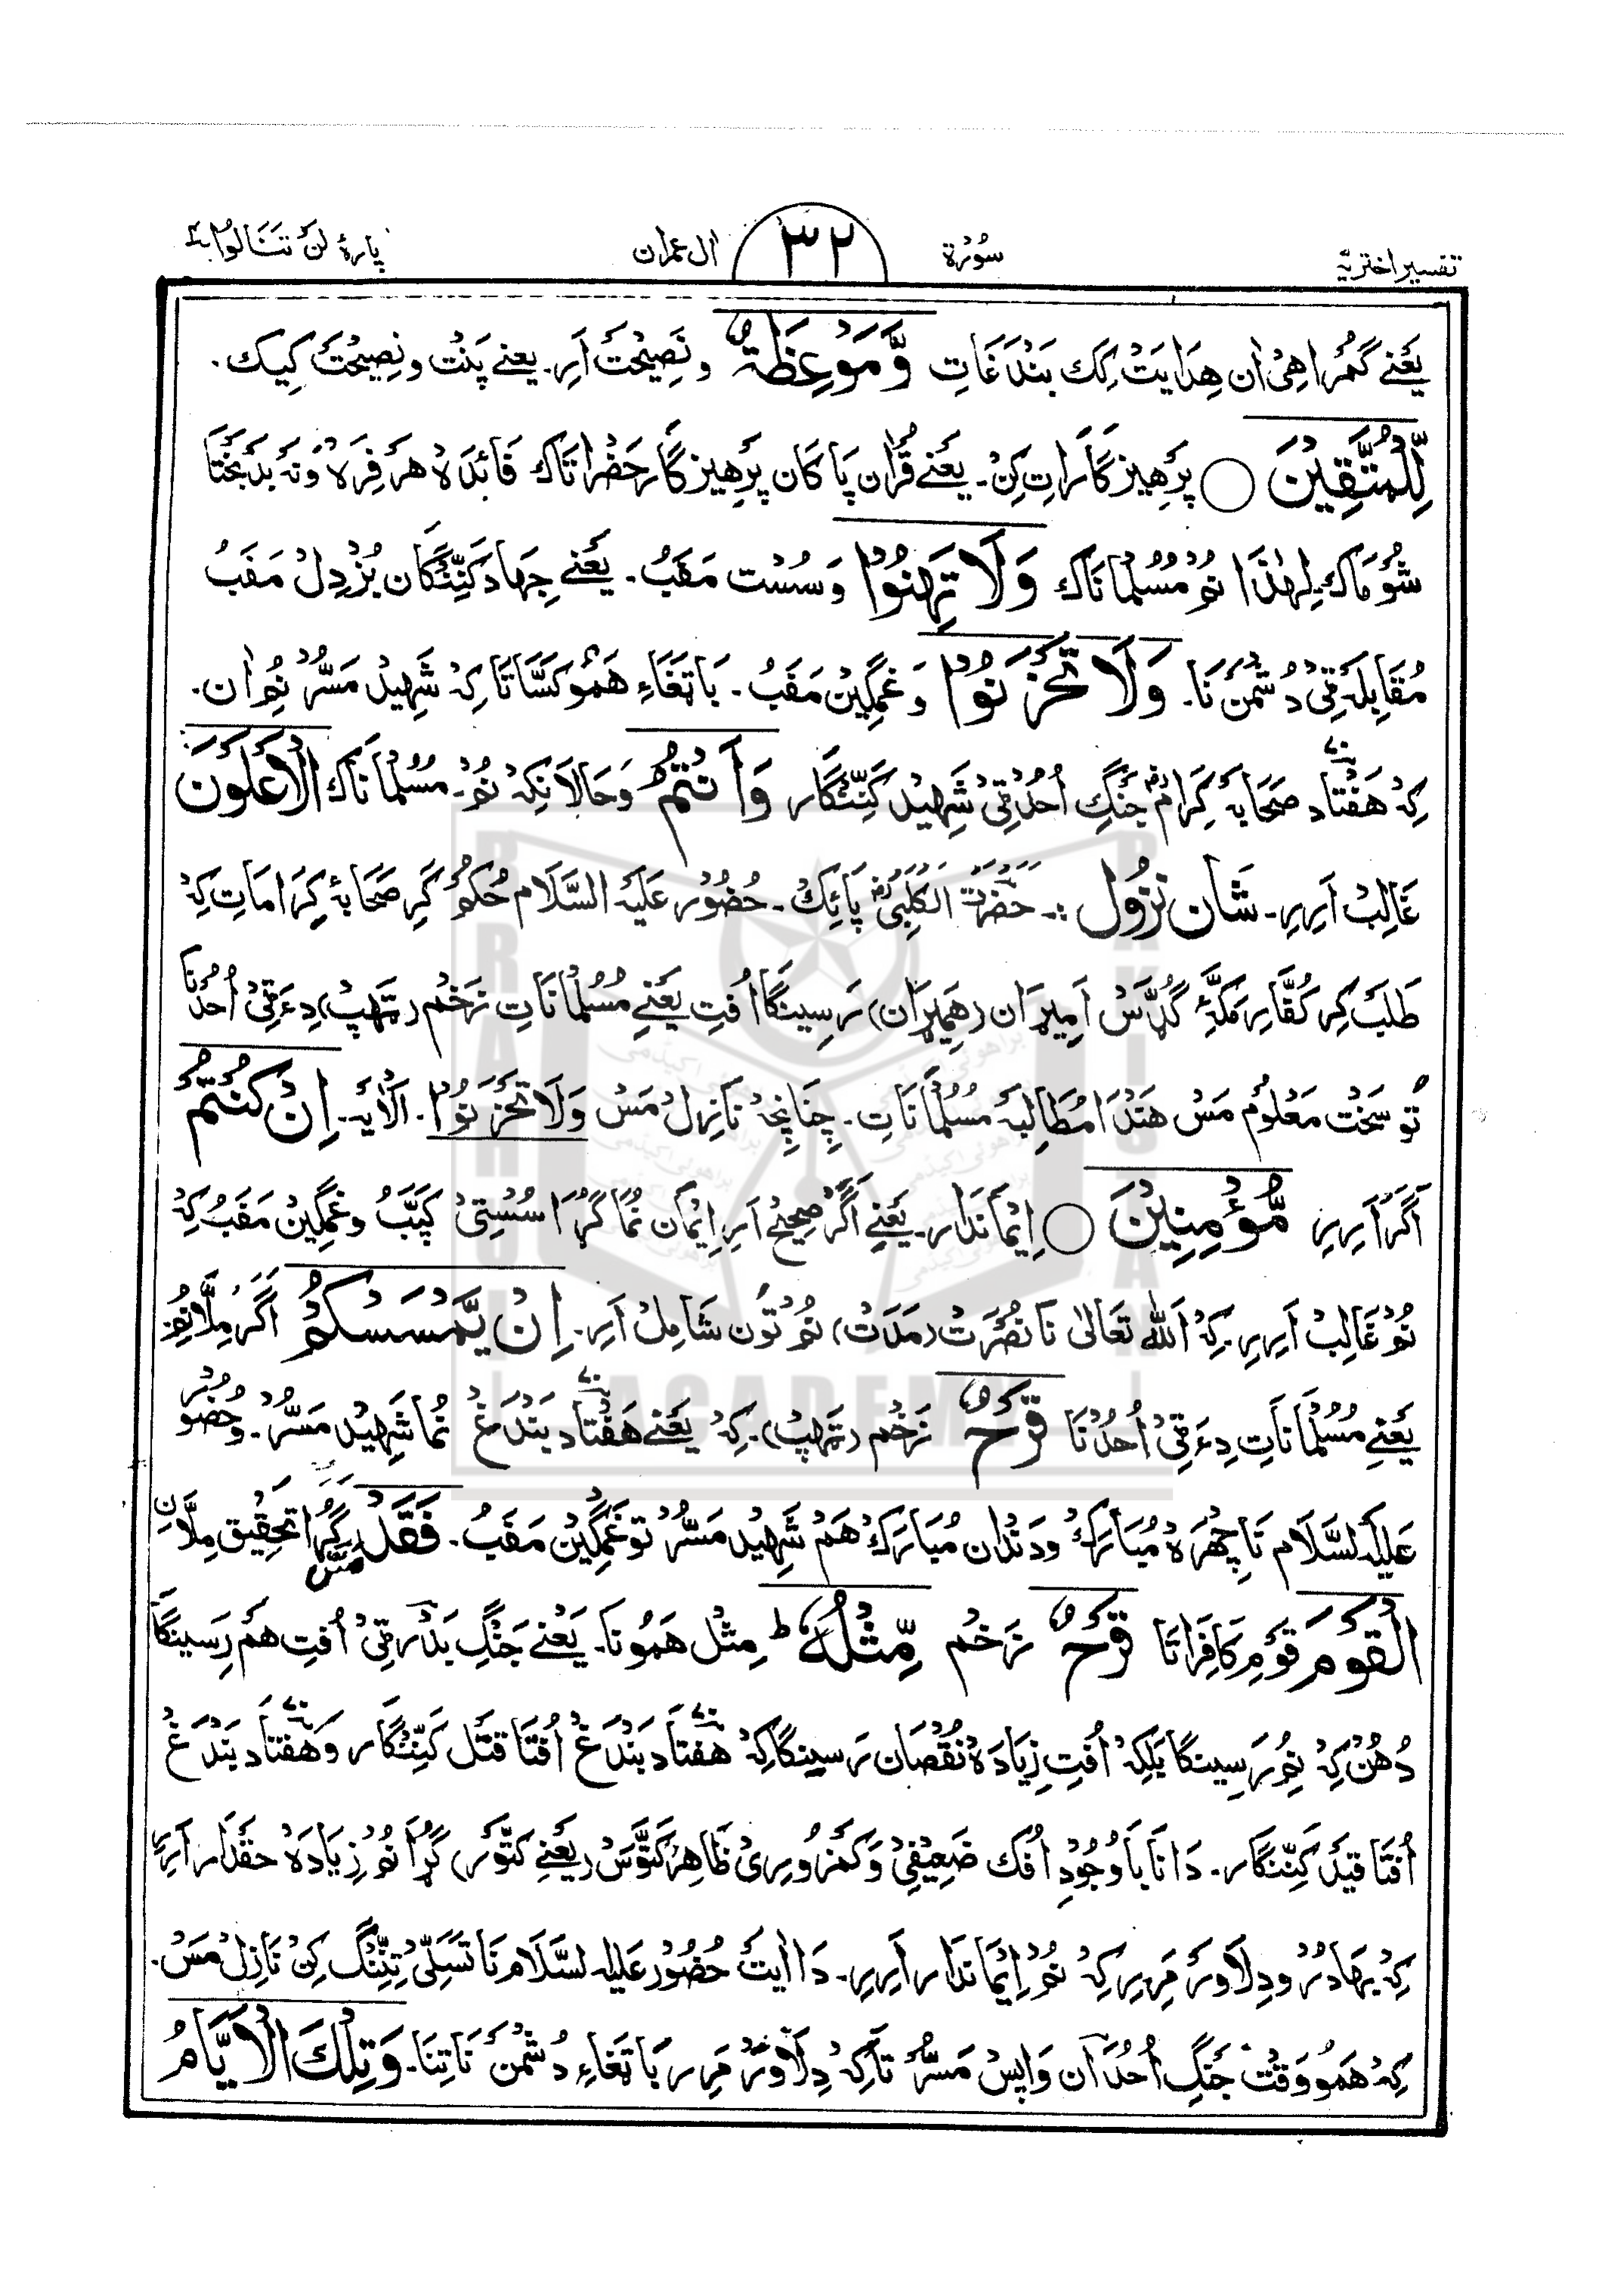 تفسیر اختریّہ سُوْرَة ۳۲ اٰل عمران پارۂ لَنْ تَنَالُوا ۴
یَعْنے گُمْراہِیْ اٰن ھِدَایَتْ کِک بَنْدَغَاتِ وَّمَوْعِظَةٌ و نَصِیْحَتْ اَرِ۔ یعنے پَنْت و نِصِیْحَتْ کِیک۔
لِّلْمُتَّقِیْنَ ○ پَرْھِیزگَارَاتِ کِنْ۔ یَعْنے قُرْان پَاکَان پَرْھِیْزگَار حَضْرَاتَاک فَائِدَہ ھَرفِرَہْ وَنَہ بَدْبَخْتَا
شُوْمَاک لِہٰذَا نُمْ مُسُلْمَانَاک وَلَا تَہِنُوْا وَ سُسْت مَفَبُ۔ یَعْنے جِہَاد کَنِّنْگَان بُزْدِلْ مَفَبُ
مُقَابِلَہ ٹِیْ دُشْمَنْ نَا۔ وَلَا تَحْزَنُوْا وَ غَمْگِیْن مَفَبُ۔ بَاتِغَاءِ ھَمُوْ کَسَّاتَا کِہْ شَہِیْدْ مَسُّرْ نُمْ اٰن۔
کِہْ ھَفْتَاد ۷۰ صَحَابَۂ کِرَامْ جَنْگِ اُحُدْ ٹِیْ شَہِیْد کَنِّنْگَار وَاَنْتُمُ وَحَالَانِکِہْ نُمْ۔ مُسُلْمَانَاک الْاَعْلَوْنَ
غَالِبْ اَرِیرِ۔ شَان نُزُوْل :۔ حَضْرَتْ الکَلْبِیْ پَائِکْ۔ حُضُوْر عَلَیْہ السَّلَام حُکْم کَرِ صَحَابَۂ کِرَامَاتِ کِہْ
طَلَبْ کِر کُفَّارِ مَکَّہ گُڈَّس اَمِیْرَان (ھَمِیْرَان) رَسِیْنگَا اُفْتِ یَعْنے مُسُلْمَانَاتِ زَخْم (ٹَہْپ) دِءَ ٹِیْ اُحُدْنَا
تَوْ سَخْت مَعْلُوْم مَسْ ھَنْدَا مُطَالِبَہ مُسُلْمَانَاتِ۔ چِنَانِچِہْ نَازِلْ مَسْ وَلَا تَحْزَنُوْا۔ اَلْاٰیَہ۔ اِنْ کُنْتُمْ
اَگَر اَرِیرِ مُّؤْمِنِیْنَ ○ اِیْمَانْدَار۔ یَعْنے اَگَر صَحِیْح اَرِ اِیْمَان نُمَا گُڑَا سُسْتِیْ کَپَّبْ وغَمْگِیْن مَفَبُ کِہْ
نُمْ غَالِبْ اَرِیرِ کِہْ اَللّٰہ تَعَالٰی نَا نُصْرَتْ (مَدَتْ) نُمْ تُوْن شَامِلْ اَرِ۔ اِنْ یَّمْسَسْکُمْ اَگَر مِلَّا نُمْ
یَعْنے مُسُلْمَانَاتِ دِءَ ٹِیْ اُحُدْنَا قَرْحٌ زَخْم (ٹَہْپ)۔ کِہْ یَعْنے ھَفْتَاد ۷۰ بَنْدَغ نُمَا شَہِیْد مَسُّرْ۔ وحُضُوْر
عَلَیْہ السَّلَام نَا چِہْرَہ مُبَارَکْ ودَنْدَان مُبَارَکْ ھَمْ شَہِیْد مَسُّرْ تَوْ غَمْگِیْن مَفَبُ۔ فَقَدْ مَسَّ گُڑَا تَحْقِیْق مِلَّانِ
الْقَوْمَ قَوْم کَافِرَاتَا قَرْحٌ زَخْم مِّثْلُہٗ ط مِثْل ھَمُوْنَا۔ یَعْنے جَنْگِ بَدْر ٹِیْ اُفْتِ ھَمْ رَسِیْنگَا
دُھُنْ کِہْ نُمْ رَسِیْنگَا بَلِکِہْ اُفْتِ زِیَادَہ نُقْصَان رَسِیْنگَا کِہْ ھَفْتَاد ۷۰ بَنْدَغ اُفْتَا قَتْل کَنِّنْگَار وَھَفْتَاد ۷۰ بَنْدَغ
اُفْتَا قَیْد کَنِّنْگَار۔ دَانَا بَاوُجُوْد اُفْک ضَعِیْفِیْ وَکَمْزُوْرِیْ ظَاھِر کَتَّوَسْ (یَعْنے کَتَّوَر) گُڑَا نُمْ زِیَادَہ حَقْدَار اَرِیرِ
کِہْ بَہَادُر ودِلَاوَر مَرِیرِ کِہْ نُمْ اِیْمَانْدَار اَرِیرِ۔ دَا اٰیَتْ حُضُوْر عَلَیْہ السَّلَام نَا تَسَلِّیْ تِنِّنْگ کِنْ نَازِلْ مَسْ۔
کِہْ ھَمُوْ وَقْتْ جَنْگِ اُحُدَان وَاپَسْ مَسُّرْ تَاکِہْ دِلَاوَر مَرِر بَاتِغَاءِ دُشْمَنْ نَا تِنَا۔ وَتِلْکَ الْاَیَّامُ